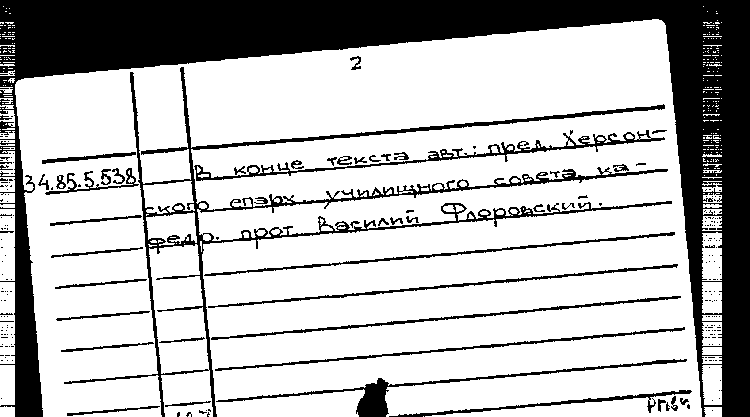 2
34.85.5.538 В конце текста авт.: пред. Херсон-
ского епарх. училищного совета, ка-
федр. прот. Василий Флоровский.